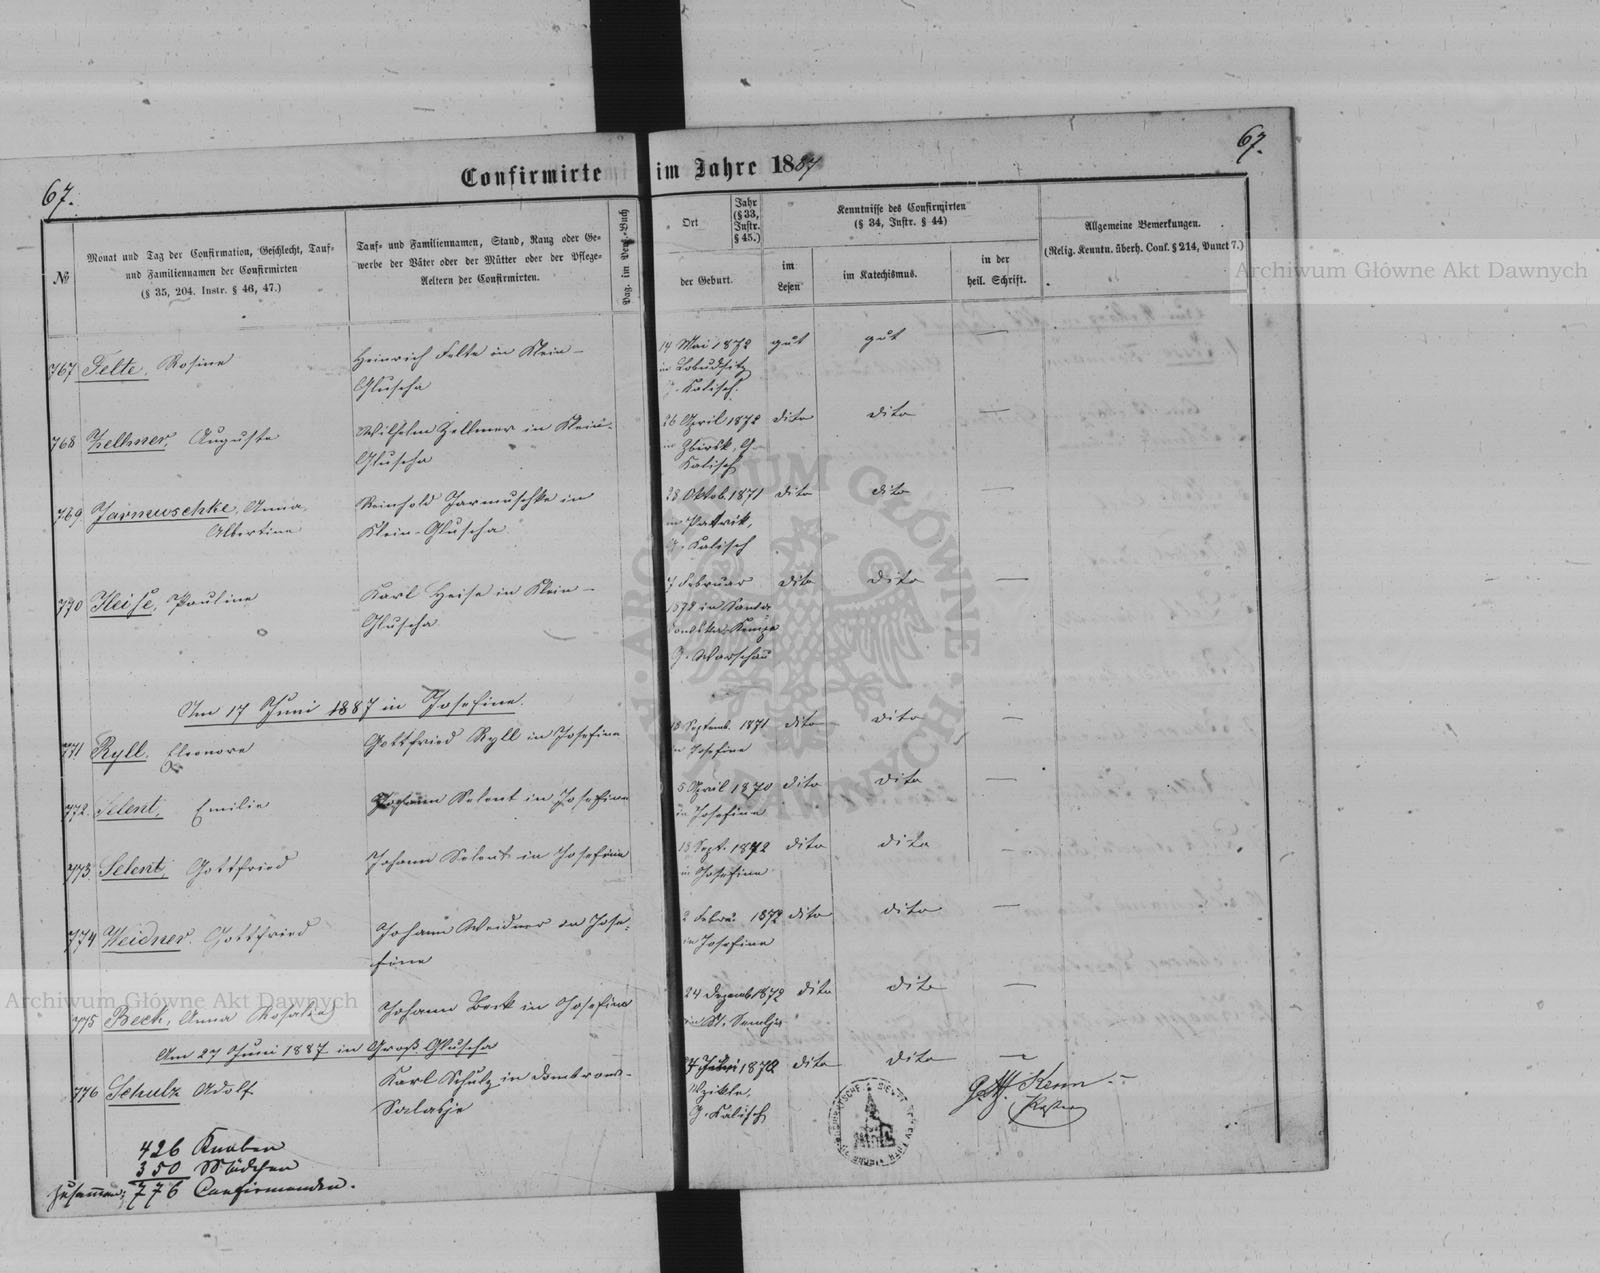 67.
67.
Confirmirte im Jahre 1887
№
Monat und Tag der Confirmation, Geschlecht, Tauf-
und Familiennamen der Confirmirten
(§ 35, 204. Instr. § 46, 47.)
Tauf- und Familiennamen, Stand, Rang oder Ge-
werbe der Väter oder der Mütter oder der Pflege-
Aeltern der Confirmirten.
Pag. im Pers.-Buch
Ort
Jahr
(§ 33,
Instr.
§ 45.)
der Geburt.
Kenntnisse des Confirmirten
(§ 34, Instr. § 44)
im
Lesen
im Katechismus.
in der
heil. Schrift.
Allgemeine Bemerkungen.
(Relig. Kenntn. überh. Conf. § 214, Punct 7.)
Archiwum Główne Akt Dawnych
767 Felte, Rosine
Heinrich Felte in Klein-
Gluscha
14 Mai 1872
in
G. Kalisch.
gut gut —
768 Zellmer, Auguste
Wilhelm Zellmer in Klein-
Gluscha
26 April 1872
in Zbiersk, G.
Kalisch
dito dito —
769. Jarmuschke, Anna
Albertine
Reinhold Jarmuschke in
Klein-Gluscha
28 Oktob. 1871
in
G. Kalisch
dito dito —
770 Heise, Pauline
Karl Heise in Klein-
Gluscha
7 Februar
1872 in
Kempa
G. Warschau
dito dito —
Am 17 Juni 1887 in Josefine.
771 Ryll, Eleonore
Gottfried Ryll in Josefine
18 Septemb. 1871
in Josefine
dito dito —
772. Selent, Emilie
Johann Selent in Josefine
5 April 1870
in Josefine
dito dito —
773. Selent, Gottfried
Johann Selent in Josefine
18 Sept. 1872
in Josefine
dito dito —
774 Weidner, Gottfried
Johann Weidner in Jose-
fine
2 Febru. 1872
in Josefine
dito dito —
Archiwum Główne Akt Dawnych
775 Beck, Anna Rosalie
Johann Beck in Josefine
24 Dezemb 1872
in
dito dito —
Am 27 Juni 1887 in Groß Gluscha
776 Schulz Adolf
Karl Schulz in Dombrowo-
Salasje
1872
G. Kalisch
dito dito —
426 Knaben
350 Mädchen
zusammen: 776 Confirmanden.
ARCHIWUM GŁÓWNE AKT DAWNYCH